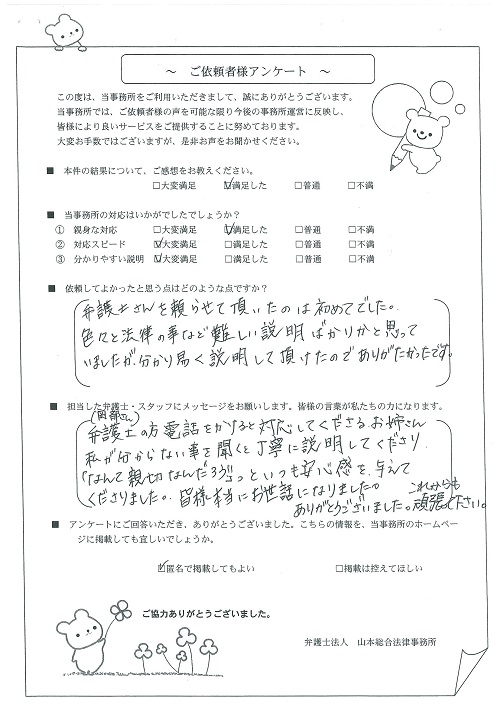 ～ ご依頼者様アンケート ～
この度は、当事務所をご利用いただきまして、誠にありがとうございます。
当事務所では、ご依頼者様の声を可能な限り今後の事務所運営に反映し、
皆様により良いサービスをご提供することに努めております。
大変お手数ではございますが、是非お声をお聞かせください。
■ 本件の結果について、ご感想をお教えください。
□大変満足 ☑満足した □普通 □不満
■ 当事務所の対応はいかがでしたでしょうか？
① 親身な対応 □大変満足 ☑満足した □普通 □不満
② 対応スピード ☑大変満足 □満足した □普通 □不満
③ 分かりやすい説明 ☑大変満足 □満足した □普通 □不満
■ 依頼してよかったと思う点はどのような点ですか？
弁護士さんを頼らせて頂いたのは初めてでした。
色々と法律の事など難しい説明ばかりかと思って
いましたが、分かり易く説明して頂けたのでありがたかったです。
■ 担当した弁護士・スタッフにメッセージをお願いします。皆様の言葉が私たちの力になります。
弁護士の方 電話をかけると対応してくださるお姉さん
私が分からない事を聞くと丁寧に説明してくださり
「なんて親切なんだろう」といつも安心感を与えて
くださりました。皆様本当にお世話になりました。
ありがとうございました。これからも
頑張ってください。
■ アンケートにご回答いただき、ありがとうございました。こちらの情報を、当事務所のホームペー
ジに掲載しても宜しいでしょうか。
☑匿名で掲載してもよい □掲載は控えてほしい
ご協力ありがとうございました。
弁護士法人 山本総合法律事務所